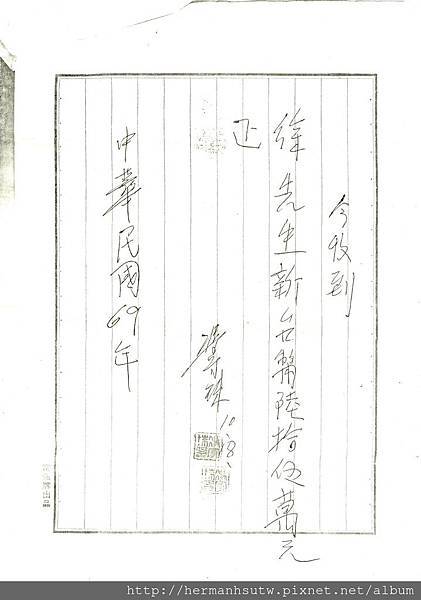 今收到
徐先生新台幣陸拾伍萬元
正
10.8.
中華民國69年
http://hermanhsutw.pixnet.net/album